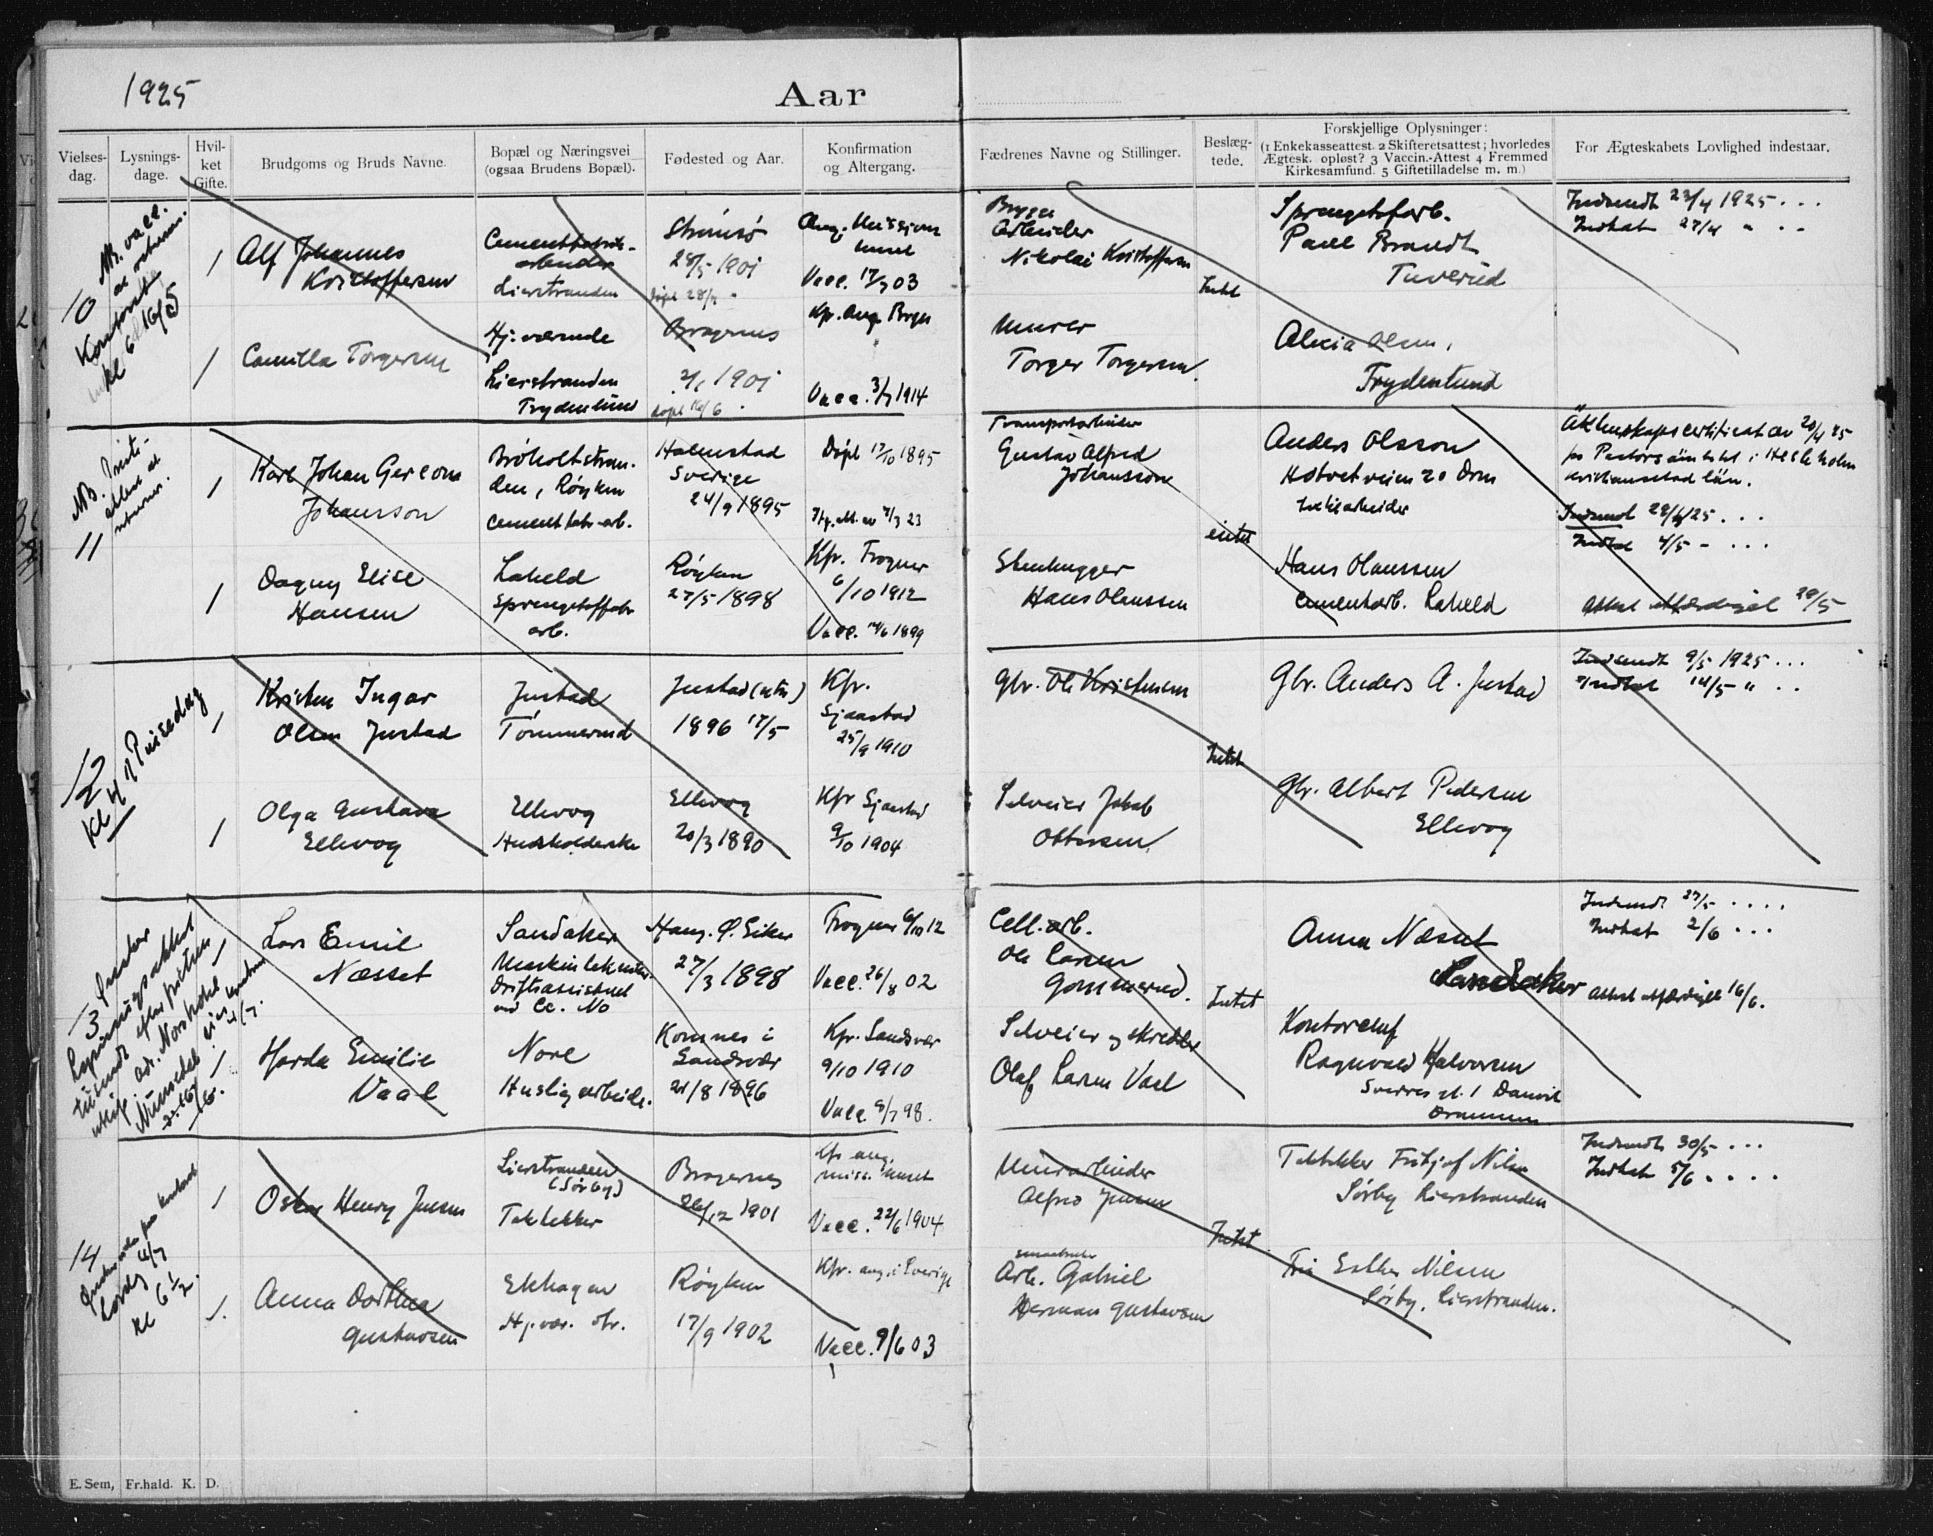 1925
Aar
Vielses-
dag.
Lysnings-
dage.
Hvil-
ket
Gifte.
Brudgoms og Bruds Navne.
Bopæl og Næringsvei
(ogsaa Brudens Bopæl).
Fødested og Aar.
Konfirmation
og Altergang.
Fædrenes Navne og Stillinger.
Beslæg-
tede.
Forskjellige Oplysninger:
(1 Enkekasseattest. 2 Skifteretsattest; hvorledes
Ægtesk. opløst? 3 Vaccin.-Attest 4 Fremmed
Kirkesamfund. 5 Giftetilladelse m. m.)
For Ægteskabets Lovlighed indestaar.
10
NB. vacc.
Kontoret
kl 6 16/5
1
Alf Johannes
Kristoffersen
Cementfabrik-
arbeider
Lierstranden
Strømsø
1901
Vacc. 17/9 03
Brygge
Arbeider
Nikolai Kristoffersen
Intet
Sprengstofarb.
Paul Brandt
Tuverud
Indsendt 23/4 1925 . . .
Indkat 27/4 " . .
1
Camilla Torgersen
Hj. værende
Lierstranden
Frydenlund
Bragernes
2/1 1901
døpt 16/6
Vacc. 3/7 1914
Murer
Torger Torgersen
Alexia Olsen,
Frydenlund
11
NB.
1
Karl Johan Gerson
Johansson
Bröholtstran-
den, Røyken
cementfabr-arb.
Halmstad
Sverige
24/9 1895
Døpt 17/10 1895
Transportarbeider
Gustav Alfred
Johansson
intet
Anders Olsson
Hotvetveien 20 Drm
Äktenskapscertificat av 20/4 25
Kristianstad län.
Indsendt 29/4 25 . . .
Indkat 4/5 - . . .
1
Dagny Elise
Hansen
Laheld
Sprengstoffabr
arb.
Røyken
27/5 1898
Kfr. Frogner
6/10 1912
Vacc. 14/6 1899
Stenhugger
Hans Olaussen
Hans Olaussen
cementarb. Laheld
Attest utfærdiget 20/5
12
kl 4
1
Kristen Ingar
Olsen Justad
Justad
Tömmermd
Justad
1896 17/5
Kfr.
Sjaastad
25/9 1910
Gbr. Ole Kristensen
Intet
Gbr. Anders A. Justad
Indsendt 9/5 1925 . . .
Indkat 14/5 " . .
1
Olga Gustava
Ellevog
Ellevog
Husholderske
Ellevog
20/3 1890
Kfr Sjaastad
9/10 1904
Selveier Jakob
Ottersen
Gbr. Albert Pedersen
Ellevog
1
Lars Emil
Næsset
Sandaker
Maskintekniker
Driftsassistent
Haug. Ø. Eiker
27/3 1898
Frogner 6/10 12
Vacc. 26/8 02
Cell. arb.
Ole Larsen
Gommerud.
Intet
Anna Næsset
Sandaker
Indsendt 27/5 . . . .
Indkat 2/6 . . .
Attest utfærdiget 16/6.
1
Harda Emilie
Vaal
Nore
Huslig arbeide.
Komnes i
Sandsvær
21/8 1896
Kfr. Sandsvær
9/10 1910
Vacc. 9/7 98.
Selveier og skredder
Olaf Larsen Vaal
Kontorchef
Ragnvald Halvorsen
Sverres gt. 1 Danvik
Drammen
14
Lordg 4/7
kl 6 1/2.
1
Oskar Henry Jensen
Lierstranden
(Sørby)
Taktekker
Bragernes
26/12 1901
Vacc. 22/6 1904
Murarbeider
Alfred Jensen
Intet
Taktekker Fritjof Nilsen
Sørby Lierstranden
Indsendt 30/5 . . .
Indkat 5/6 . . . .
1.
Anna Dorthea
Gustavsen
Ekhagen
Hj. vær. dtr.
Røyken
17/9 1902
Kfr. ang. i Sverige
Vacc. 9/6 03
Arb. Gabriel
Herman Gustavsen
Frk Esther Nilsen
Sørby, Lierstranden.
E. Sem, Fr.hald. K. D.